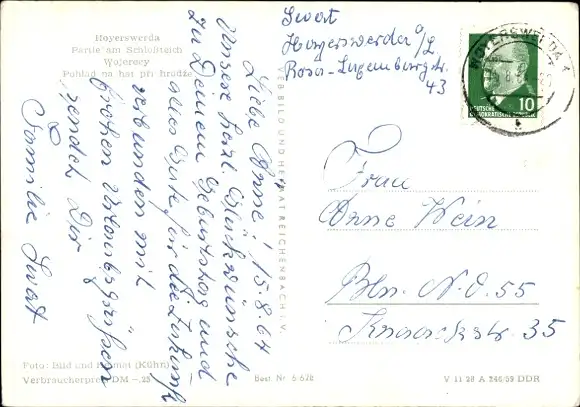 Hoyerswerda
Partie am Schloßteich
Wojerecy
Pohlad na hat při hrodźe
Liebe Anne! 15.8.64
Unsere herzl. Glückwünsche
zu Deinem Geburtstag und
alles Gute für die Zukunft
verbunden mit
frohen Urlaubsgrüßen
sendet Dir
Familie Swat
Foto: Bild und Heimat (Kühn)
Verbraucherpreis DM -,25
Best. Nr. 6/628
VEB BILD UND HEIMAT REICHENBACH I. V.
Swat
Hoyerswerda O/L
Rosa-Luxemburgstr.
43
HOYERSWERDA 1
10
DEUTSCHE
DEMOKRATISCHE REPUBLIK
Frau
Anne Wein
Bln. N.O. 55
35
V 11 28 A 246/59 DDR